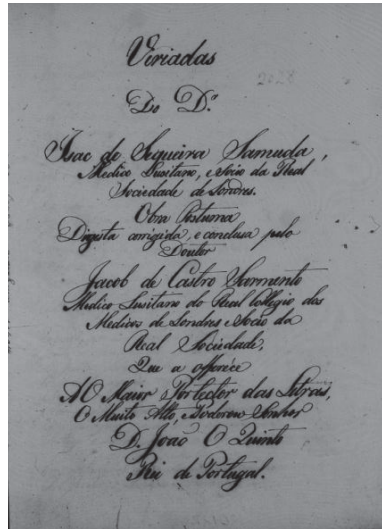 Viriadas
2028
Do D.r
Isac de Sequeira Samuda,
Medico Lusitano, e Socio da Real
Sociedade de Londres.
Obra Postuma
Digista corrigida, e conclusa pelo
Doutor
Jacob de Castro Sarmento
Medico Lusitano do Real Collegio dos
Medicos de Londres e Socio da
Real Sociedade,
Que a offerece
AO Maior Portector das Letras,
O Muito Alto, e Poderozo Senhor
D. João O Quinto
Rei de Portugal.